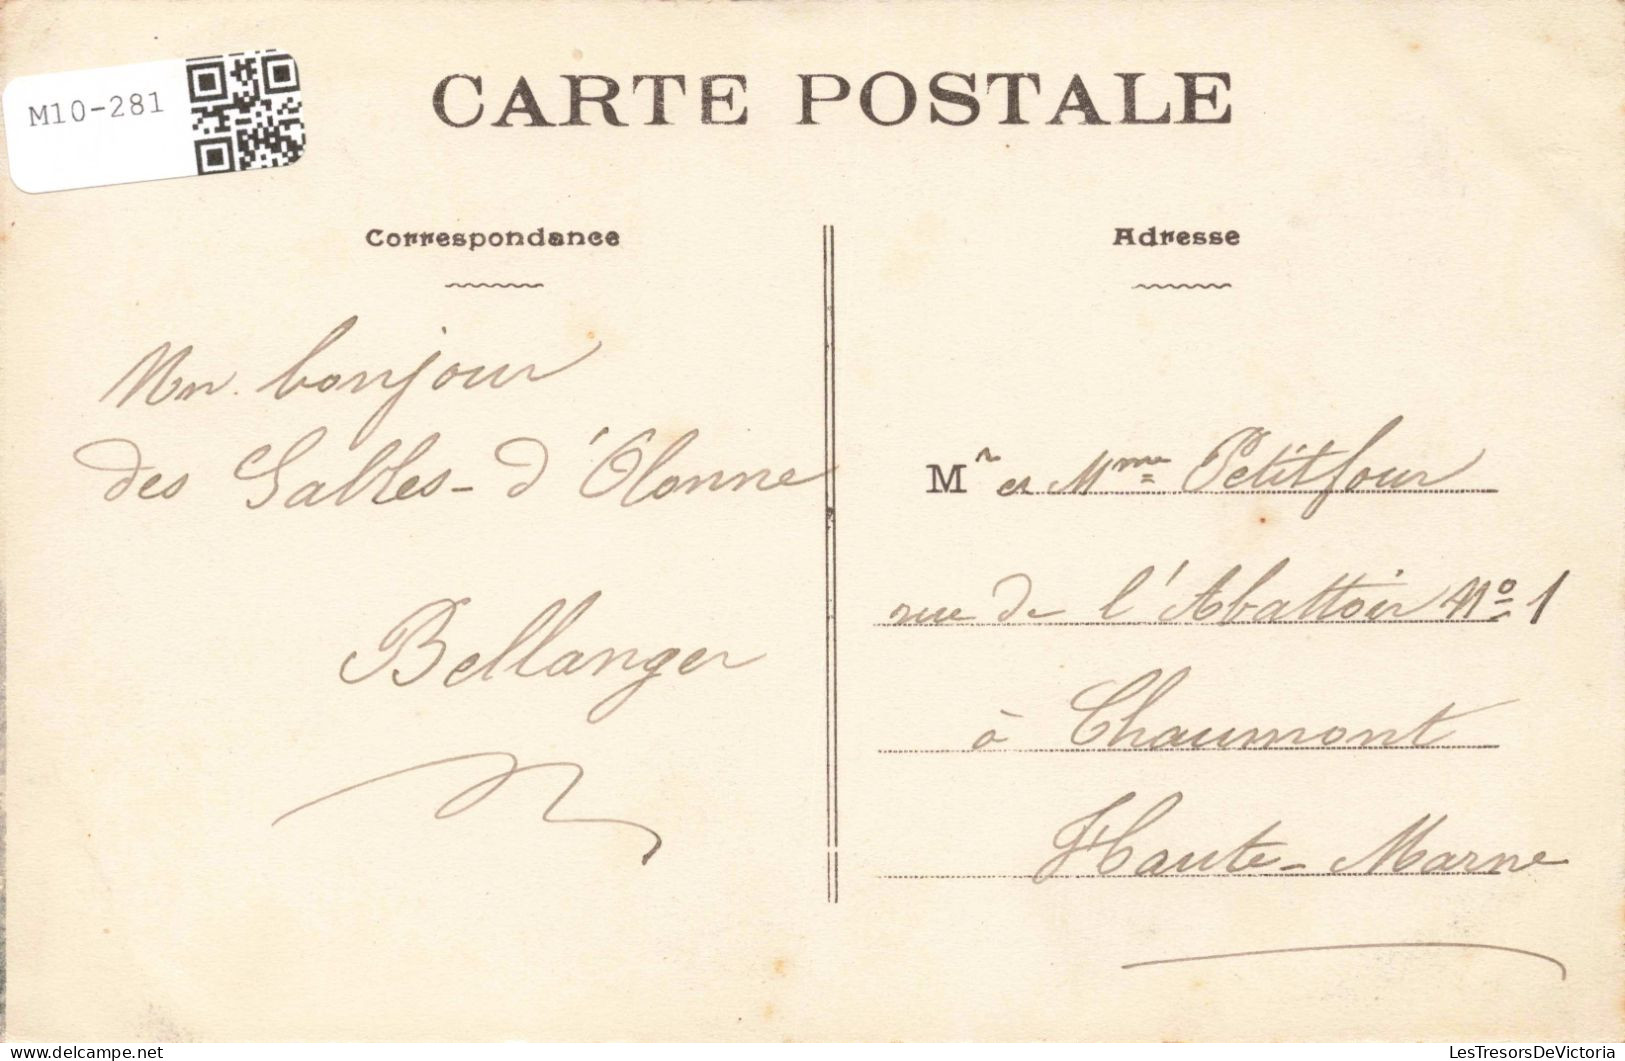 M10-281
CARTE POSTALE
Correspondance
Un bonjour
des Sables-d'Olonne
Bellanger
Adresse
Mr et Mme Petitfour
rue de l'Abattoir No 1
à Chaumont
Haute-Marne
LesTresorsDeVictoria